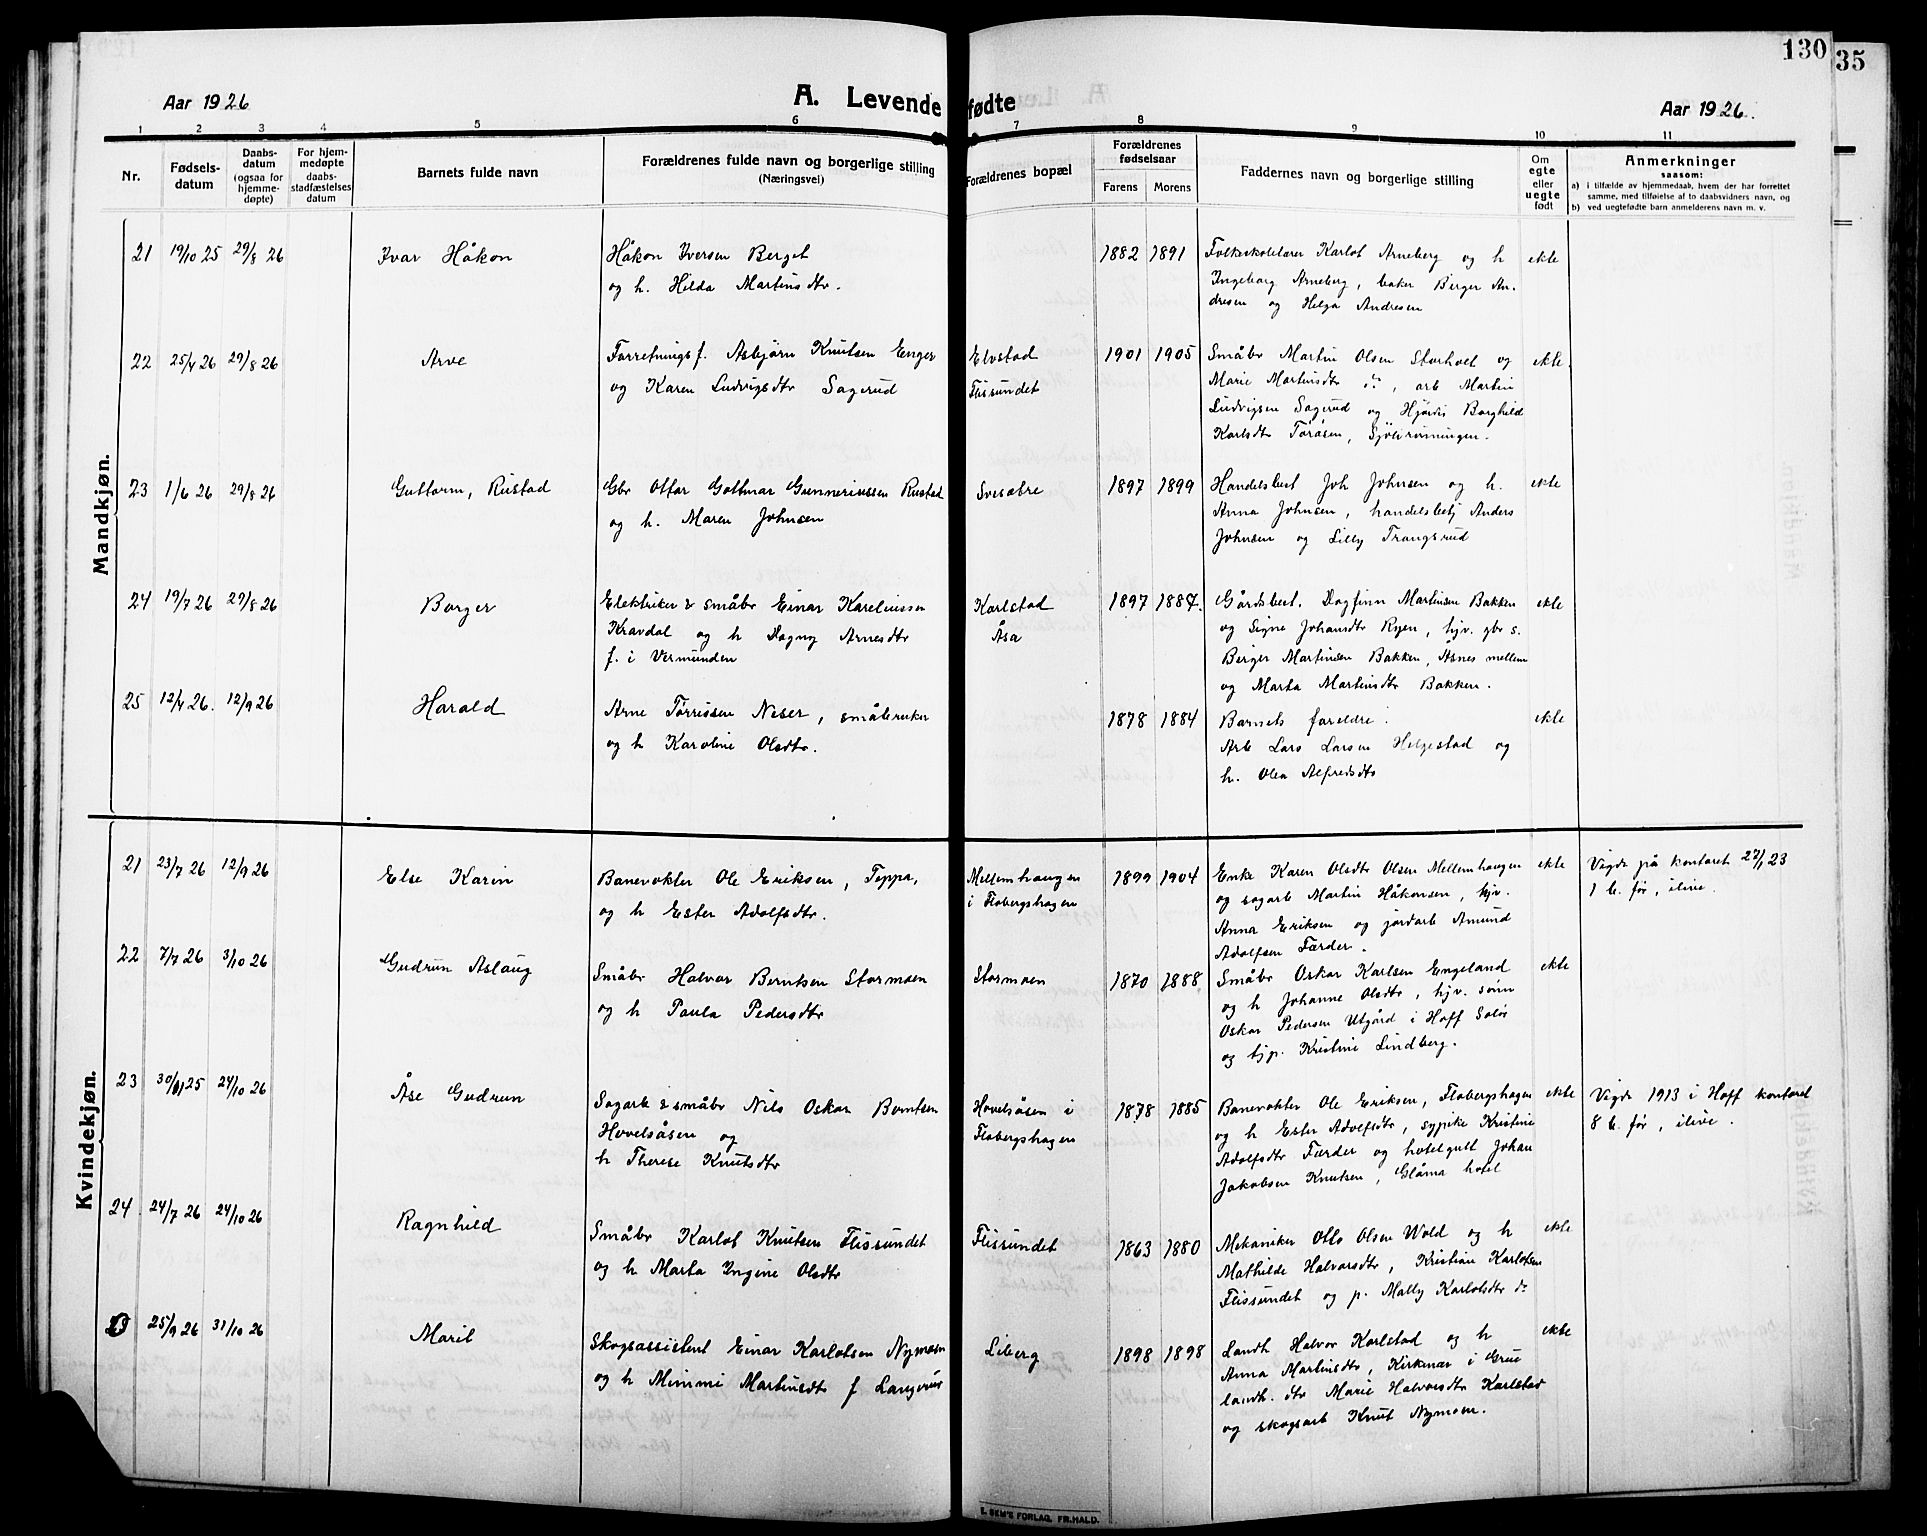 130
35
Aar 1926
A. Levende fødte
Aar 1926.
1 2 3 4 5 6 7 8 9 10 11
Nr.
Fødsels-
datum
Daabs-
datum
(ogsaa for
hjemme-
døpte)
For hjem-
medøpte
daabs-
stadfæstelses
datum
Barnets fulde navn
Forældrenes fulde navn og borgerlige stilling
(Næringsvei)
Forældrenes bopæl
Forældrenes
fødselsaar
Farens
Morens
Faddernes navn og borgerlige stilling
Om
egte
eller
uegte
født
Anmerkninger
saasom:
a) i tilfælde av hjemmedaab, hvem der har forrettet
samme, med tilføielse af to daabsvidners navn, og
b) ved uegtefødte barn anmelderens navn m. v.
Mandkjøn.
21 19/10 25 29/8 26 Ivar Håkon
Håkon Iversen Berget
og h. Hilda Martinsdtr.
1882 1891
Folkeskolelærer Karlot Arneberg og h
Ingeborg Arneberg, baker Birger An-
dresen og Helga Andresen
ekte
22 25/4 26 29/8 26 Arve
Forretningsf. Asbjørn Knutsen Enger
og Karen Ludvigsdtr Sagerud
Elvstad
Flissundet
1901 1905
Småbr Martin Olsen Storholt og
Marie Martinsdtr do, arb Martin
Ludvigsen Sagerud og Hjørdis Borghild
Karlsdtr Toråsen,
ekte.
23 1/6 26 29/8 26 Guttorm, Rustad
Gbr Ottar Gottmar Gunneriussen Rustad
og h. Maren Johnsen
1897 1899
Handelsbest Joh Johnsen og h.
Anna Johnsen, handelsbetj Anders
Johnsen og Lilly Trangsrud
ekte
24 19/7 26 29/8 26 Borger
Elektriker & småbr Einar Kareliussen
Kravdal og h Dagny Arnesdtr
f. i Vermunden
Karlstad
Åsa
1897 1887.
Gårdsbest. Dagfinn Martinsen Bakken
og Signe Johansdtr Ryen, hjv. gbr s.
Birger Martinsen Bakken, Åsnes mellem
og Marta Martinsdtr Bakken.
ekte
25 12/4 26. 12/9 26 Harald
Arne Torrissen Neser, småbruker
og h Karoline Olsdtr.
1878 1884
Barnets foreldre.
Arb Lars Larsen Helgestad og
h. Olea Alfredsdtr
ekte
Kvindekjøn.
21 23/7 26 12/9 26 Else Karin
Banevokter Ole Eriksen, Teppa,
og h Ester Adolfsdtr.
Mellemhaugen
i Flobergshagen
1899 1904
Enke Karen Olsdtr Olsen Mellemhaugen
og sagarb Martin Håkonsen, hjv.
Anna Eriksen og jordarb Amund
Adolfsen Færder.
ekte
Vigde på kontoret 27/1 23
1 b. før, ilive.
22 7/7 26 3/10 26 Gudrun Aslaug
Småbr Halvor Berntsen Stormoen
og h Paula Pedersdtr
Stormoen
1870 1888
Småbr Oskar Karlsen Engeland
og h Johanne Olsdtr, hjv. sønn
Oskar Pedersen Utgård i Hoff Solør
og tjp. Kristine Lindberg.
ekte
23 30/11 25 24/10 26 Åse Gudrun
Sagarb & småbr Nils Oskar Berntsen
Hovelsåsen og
h Therese Knutsdtr
Hovelsåsen i
Flobergshagen
1878 1885
Banevokter Ole Eriksen, Flobergshagen
og h Ester Adolfsdtr, sypike Kristine
Adolfsdtr Færder og hotelgutt Johan
Jakobsen Knutsen, Glåma hotel
ekte
Vigde 1913 i Hoff kontoret
8 b. før, ilive.
24 24/7 26 24/10 26 Ragnhild
Småbr Karlot Knutsen Flissundet
og h Marta Ingine Olsdtr
Flissundet
1863 1880
Mekaniker Otto Olsen Wold og h
Mathilde Halvorsdtr, Kristian Karlotsen
Flissundet og p. Mally Karlotsdtr do
ekte
25 25/9 26 31/10 26 Marit
Skogsassistent Einar Karlotsen Nymoen
og h Mimmi Martinsdtr f
Liberg
1898 1898
Landh Halvor Karlstad og h
Anna Martinsdtr, Kirkenær i Grue
landh. dtr Marie Halvorsdtr Karlstad
og skogsarb Knut Nymoen.
ekte
E. SEM'S FORLAG, FR.HALD.